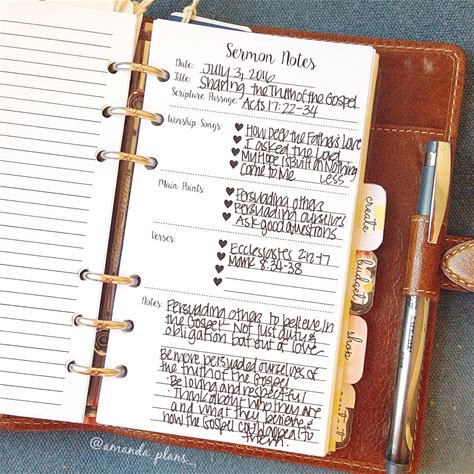 Sermon Notes
Date: July 3, 2016
Title: Sharing the Truth of the Gospel
Scripture Passage: Acts 17:22-34
Worship Songs:
How Deep the Father's Love
I asked the Lord
My Hope is Built in Nothing
Less
Come to Me
Main Points:
Persuading others
Persuading ourselves
Ask good questions
Verses:
Ecclesiastes 2:12-17
Mark 8:34-38
Notes: Persuading others to believe in
the Gospel - Not just duty &
obligation but out of love
Be more persuaded ourselves of
the truth of the Gospel
Be loving and respectful
Think about who they are
and what they believe &
how the Gospel could appeal to
them.
create
budget
@amanda_plans_